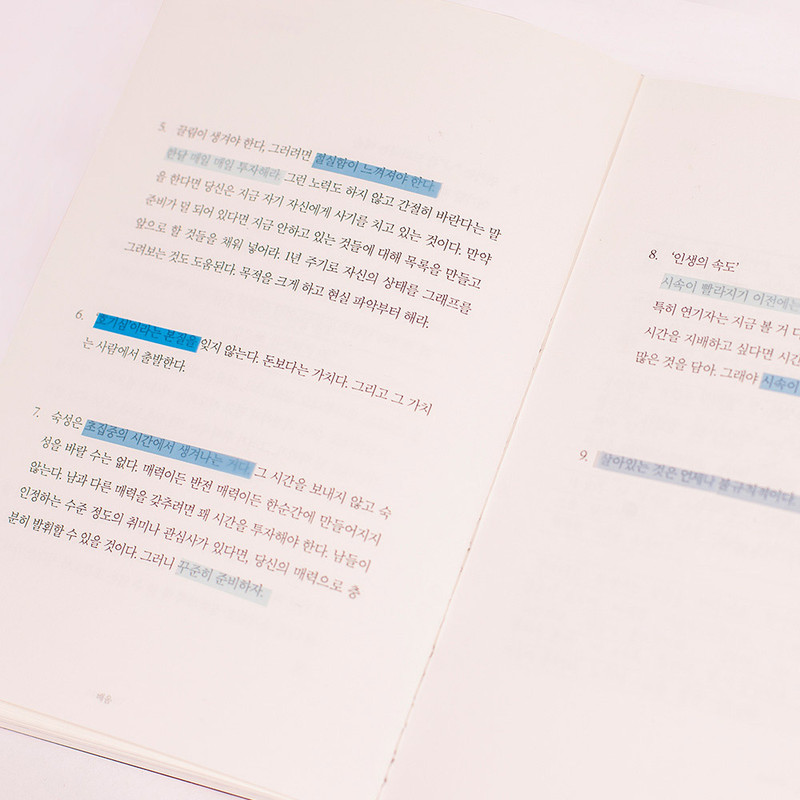 5. 끌림이 생겨야 한다, 그러려면 절실함이 느껴져야 한다.
한달 매일 매일 투자해라. 그런 노력도 하지 않고 간절히 바란다는 말
을 한다면 당신은 지금 자기 자신에게 사기를 치고 있는 것이다. 만약
준비가 덜 되어 있다면 지금 안하고 있는 것들에 대해 목록을 만들고
앞으로 할 것들을 채워 넣어라. 1년 주기로 자신의 상태를 그래프를
그려보는 것도 도움된다. 목적을 크게 하고 현실 파악부터 해라.
6. '호기심'이라는 본질을 잊지 않는다. 돈보다는 가치다. 그리고 그 가치
는 사람에서 출발한다.
7. 숙성은 초집중의 시간에서 생겨나는 거다. 그 시간을 보내지 않고 숙
성을 바랄 수는 없다. 매력이든 반전 매력이든 한순간에 만들어지지
않는다. 남과 다른 매력을 갖추려면 꽤 시간을 투자해야 한다. 남들이
인정하는 수준 정도의 취미나 관심사가 있다면, 당신의 매력으로 충
분히 발휘할 수 있을 것이다. 그러니 꾸준히 준비하자.
배움
8. '인생의 속도'
시속이 빨라지기 이전에는
특히 연기자는 지금 볼 거 다
시간을 지배하고 싶다면 시간
많은 것을 담아. 그래야 시속이
9. 살아있는 것은 언제나 불규칙적이다